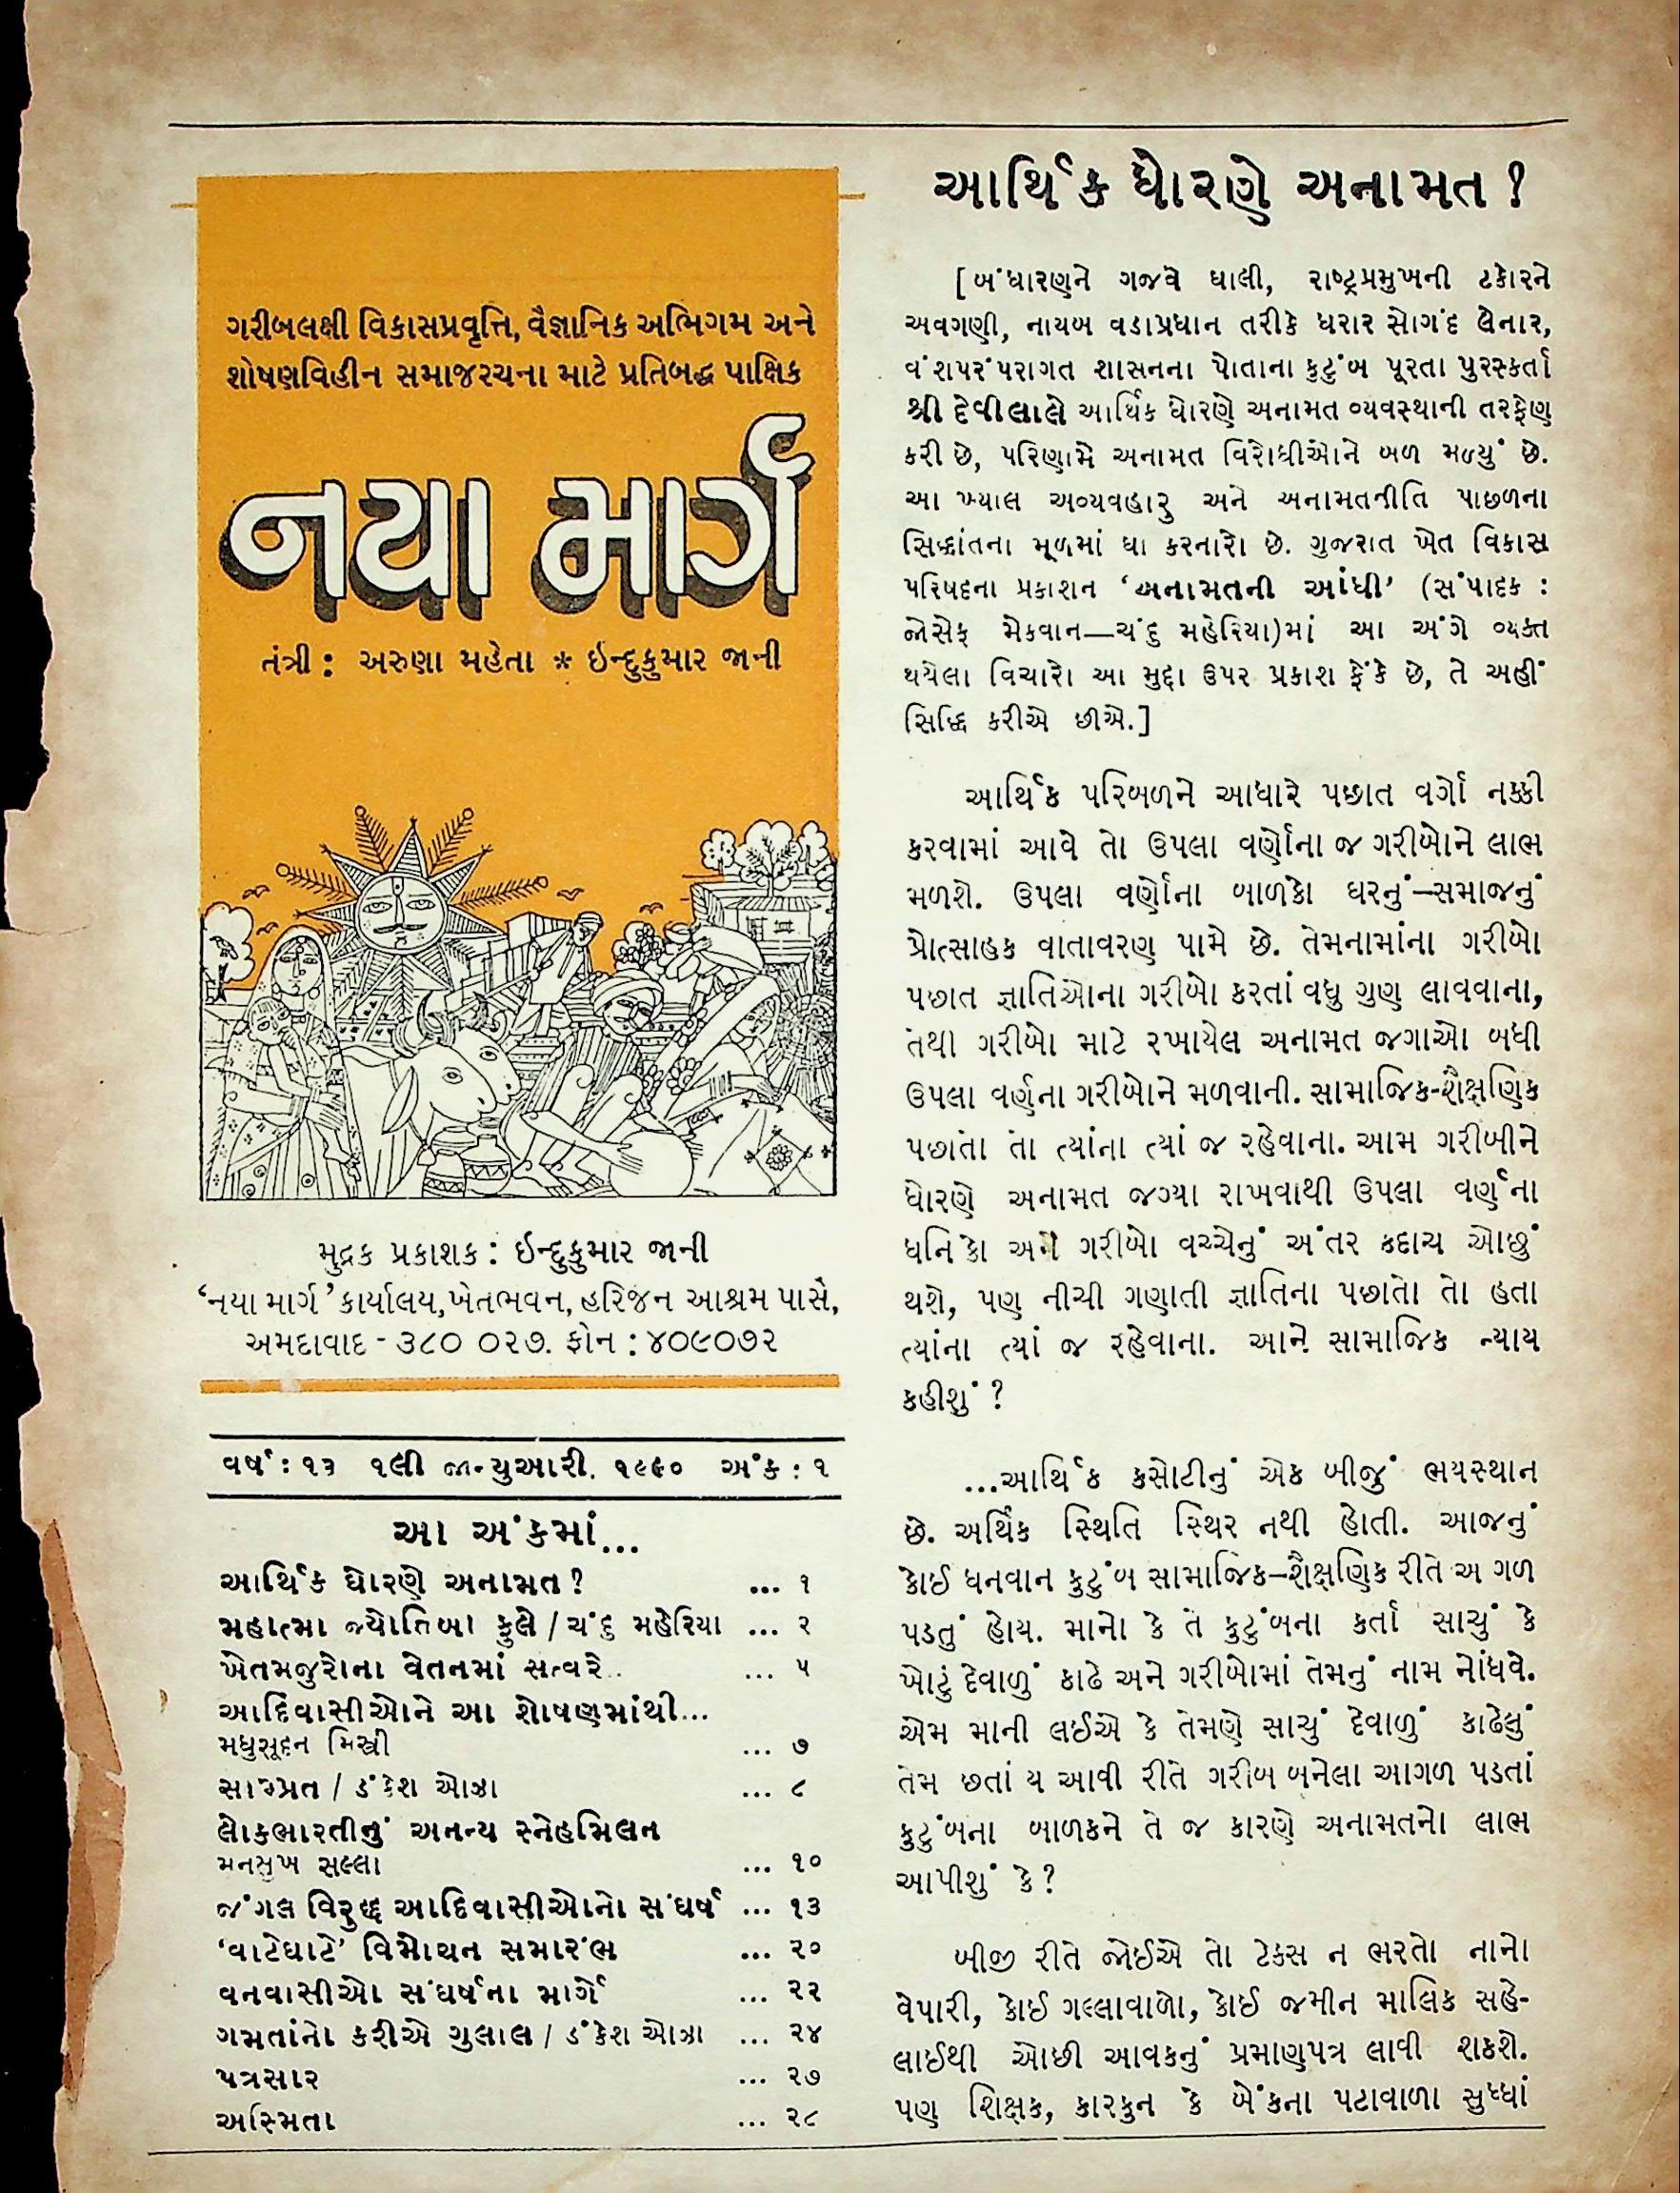 ગરીબલક્ષી વિકાસપ્રવૃત્તિ, વૈજ્ઞાનિક અભિગમ અને
શોષણવિહીન સમાજરચના માટે પ્રતિબદ્ધ પાક્ષિક
નયા માર્ગ
તંત્રી : અરુણા મહેતા * ઇન્દુકુમાર જાની
મુદ્રક પ્રકાશક : ઇન્દુકુમાર જાની
‘નયા માર્ગ’ કાર્યાલય, ખેતભવન, હરિજન આશ્રમ પાસે,
અમદાવાદ - ૩૮૦ ૦૨૭. ફોન : ૪૦૯૦૭૨
વર્ષ : ૧૩ ૧લી જાન્યુઆરી. ૧૯૯૦ અંક : ૧
આ અંકમાં...
આર્થિક ધોરણે અનામત ? ... ૧
મહાત્મા જ્યોતિબા ફુલે / ચંદુ મહેરિયા ... ૨
ખેતમજુરોના વેતનમાં સત્વરે.. ... ૫
આદિવાસીઓને આ શોષણમાંથી...
મધુસૂદન મિસ્ત્રી ... ૭
સામ્પ્રત / ડંકેશ ઓઝા ... ૮
લોકભારતીનું અનન્ય સ્નેહમિલન
મનસુખ સલ્લા ... ૧૦
જંગલ વિરુદ્ધ આદિવાસીઓનો સંઘર્ષ ... ૧૩
‘વાટેઘાટે’ વિમોચન સમારંભ ... ૨૦
વનવાસીઓ સંઘર્ષના માર્ગે ... ૨૨
ગમતાંનો કરીએ ગુલાલ / ડંકેશ ઓઝા ... ૨૪
પત્રસાર ... ૨૭
અસ્મિતા ... ૨૮
આર્થિક ધોરણે અનામત ?
[બંધારણને ગજવે ઘાલી, રાષ્ટ્રપ્રમુખની ટકોરને
અવગણી, નાયબ વડાપ્રધાન તરીકે ધરાર સોગંદ લેનાર,
વંશપરંપરાગત શાસનના પોતાના કુટુંબ પૂરતા પુરસ્કર્તા
શ્રી દેવીલાલે આર્થિક ધોરણે અનામત વ્યવસ્થાની તરફેણ
કરી છે, પરિણામે અનામત વિરોધીઓને બળ મળ્યું છે.
આ ખ્યાલ અવ્યવહારુ અને અનામતનીતિ પાછળના
સિદ્ધાંતના મૂળમાં ઘા કરનારો છે. ગુજરાત ખેત વિકાસ
પરિષદના પ્રકાશન ‘અનામતની આંધી’ (સંપાદક :
જોસેફ મેકવાન—ચંદુ મહેરિયા)માં આ અંગે વ્યક્ત
થયેલા વિચારો આ મુદ્દા ઉપર પ્રકાશ ફેંકે છે, તે અહીં
સિદ્ધિ કરીએ છીએ.]
આર્થિક પરિબળને આધારે પછાત વર્ગો નક્કી
કરવામાં આવે તો ઉપલા વર્ણોના જ ગરીબોને લાભ
મળશે. ઉપલા વર્ણોના બાળકો ઘરનું–સમાજનું
પ્રોત્સાહક વાતાવરણ પામે છે. તેમનામાંના ગરીબો
પછાત જ્ઞાતિઓના ગરીબો કરતાં વધુ ગુણ લાવવાના,
તેથી ગરીબો માટે રખાયેલ અનામત જગાઓ બધી
ઉપલા વર્ણના ગરીબોને મળવાની. સામાજિક-શૈક્ષણિક
પછાતો તો ત્યાંના ત્યાં જ રહેવાના. આમ ગરીબીને
ધોરણે અનામત જગ્યા રાખવાથી ઉપલા વર્ણના
ધનિકો અને ગરીબો વચ્ચેનું અંતર કદાચ ઓછું
થશે, પણ નીચી ગણાતી જ્ઞાતિના પછાતો તો હતા
ત્યાંના ત્યાં જ રહેવાના. આને સામાજિક ન્યાય
કહીશું ?
...આર્થિક કસોટીનું એક બીજું ભયસ્થાન
છે. અર્થિક સ્થિતિ સ્થિર નથી હોતી. આજનું
કોઈ ધનવાન કુટુંબ સામાજિક–શૈક્ષણિક રીતે અ ગળ
પડતું હોય. માનો કે તે કુટુંબના કર્તા સાચું કે
ખોટું દેવાળું કાઢે અને ગરીબોમાં તેમનું નામ નોંધવે.
એમ માની લઈએ કે તેમણે સાચું દેવાળું કાઢેલું
તેમ છતાં ય આવી રીતે ગરીબ બનેલા આગળ પડતાં
કુટુંબના બાળકને તે જ કારણે અનામતનો લાભ
આપીશું કે ?
બીજી રીતે જોઈએ તો ટેક્સ ન ભરતો નાનો
વેપારી, કોઈ ગલ્લાવાળો, કોઈ જમીન માલિક સહે-
લાઈથી ઓછી આવકનું પ્રમાણપત્ર લાવી શકશે.
પણ શિક્ષક, કારકુન કે બેંકના પટાવાળા સુધ્ધાં